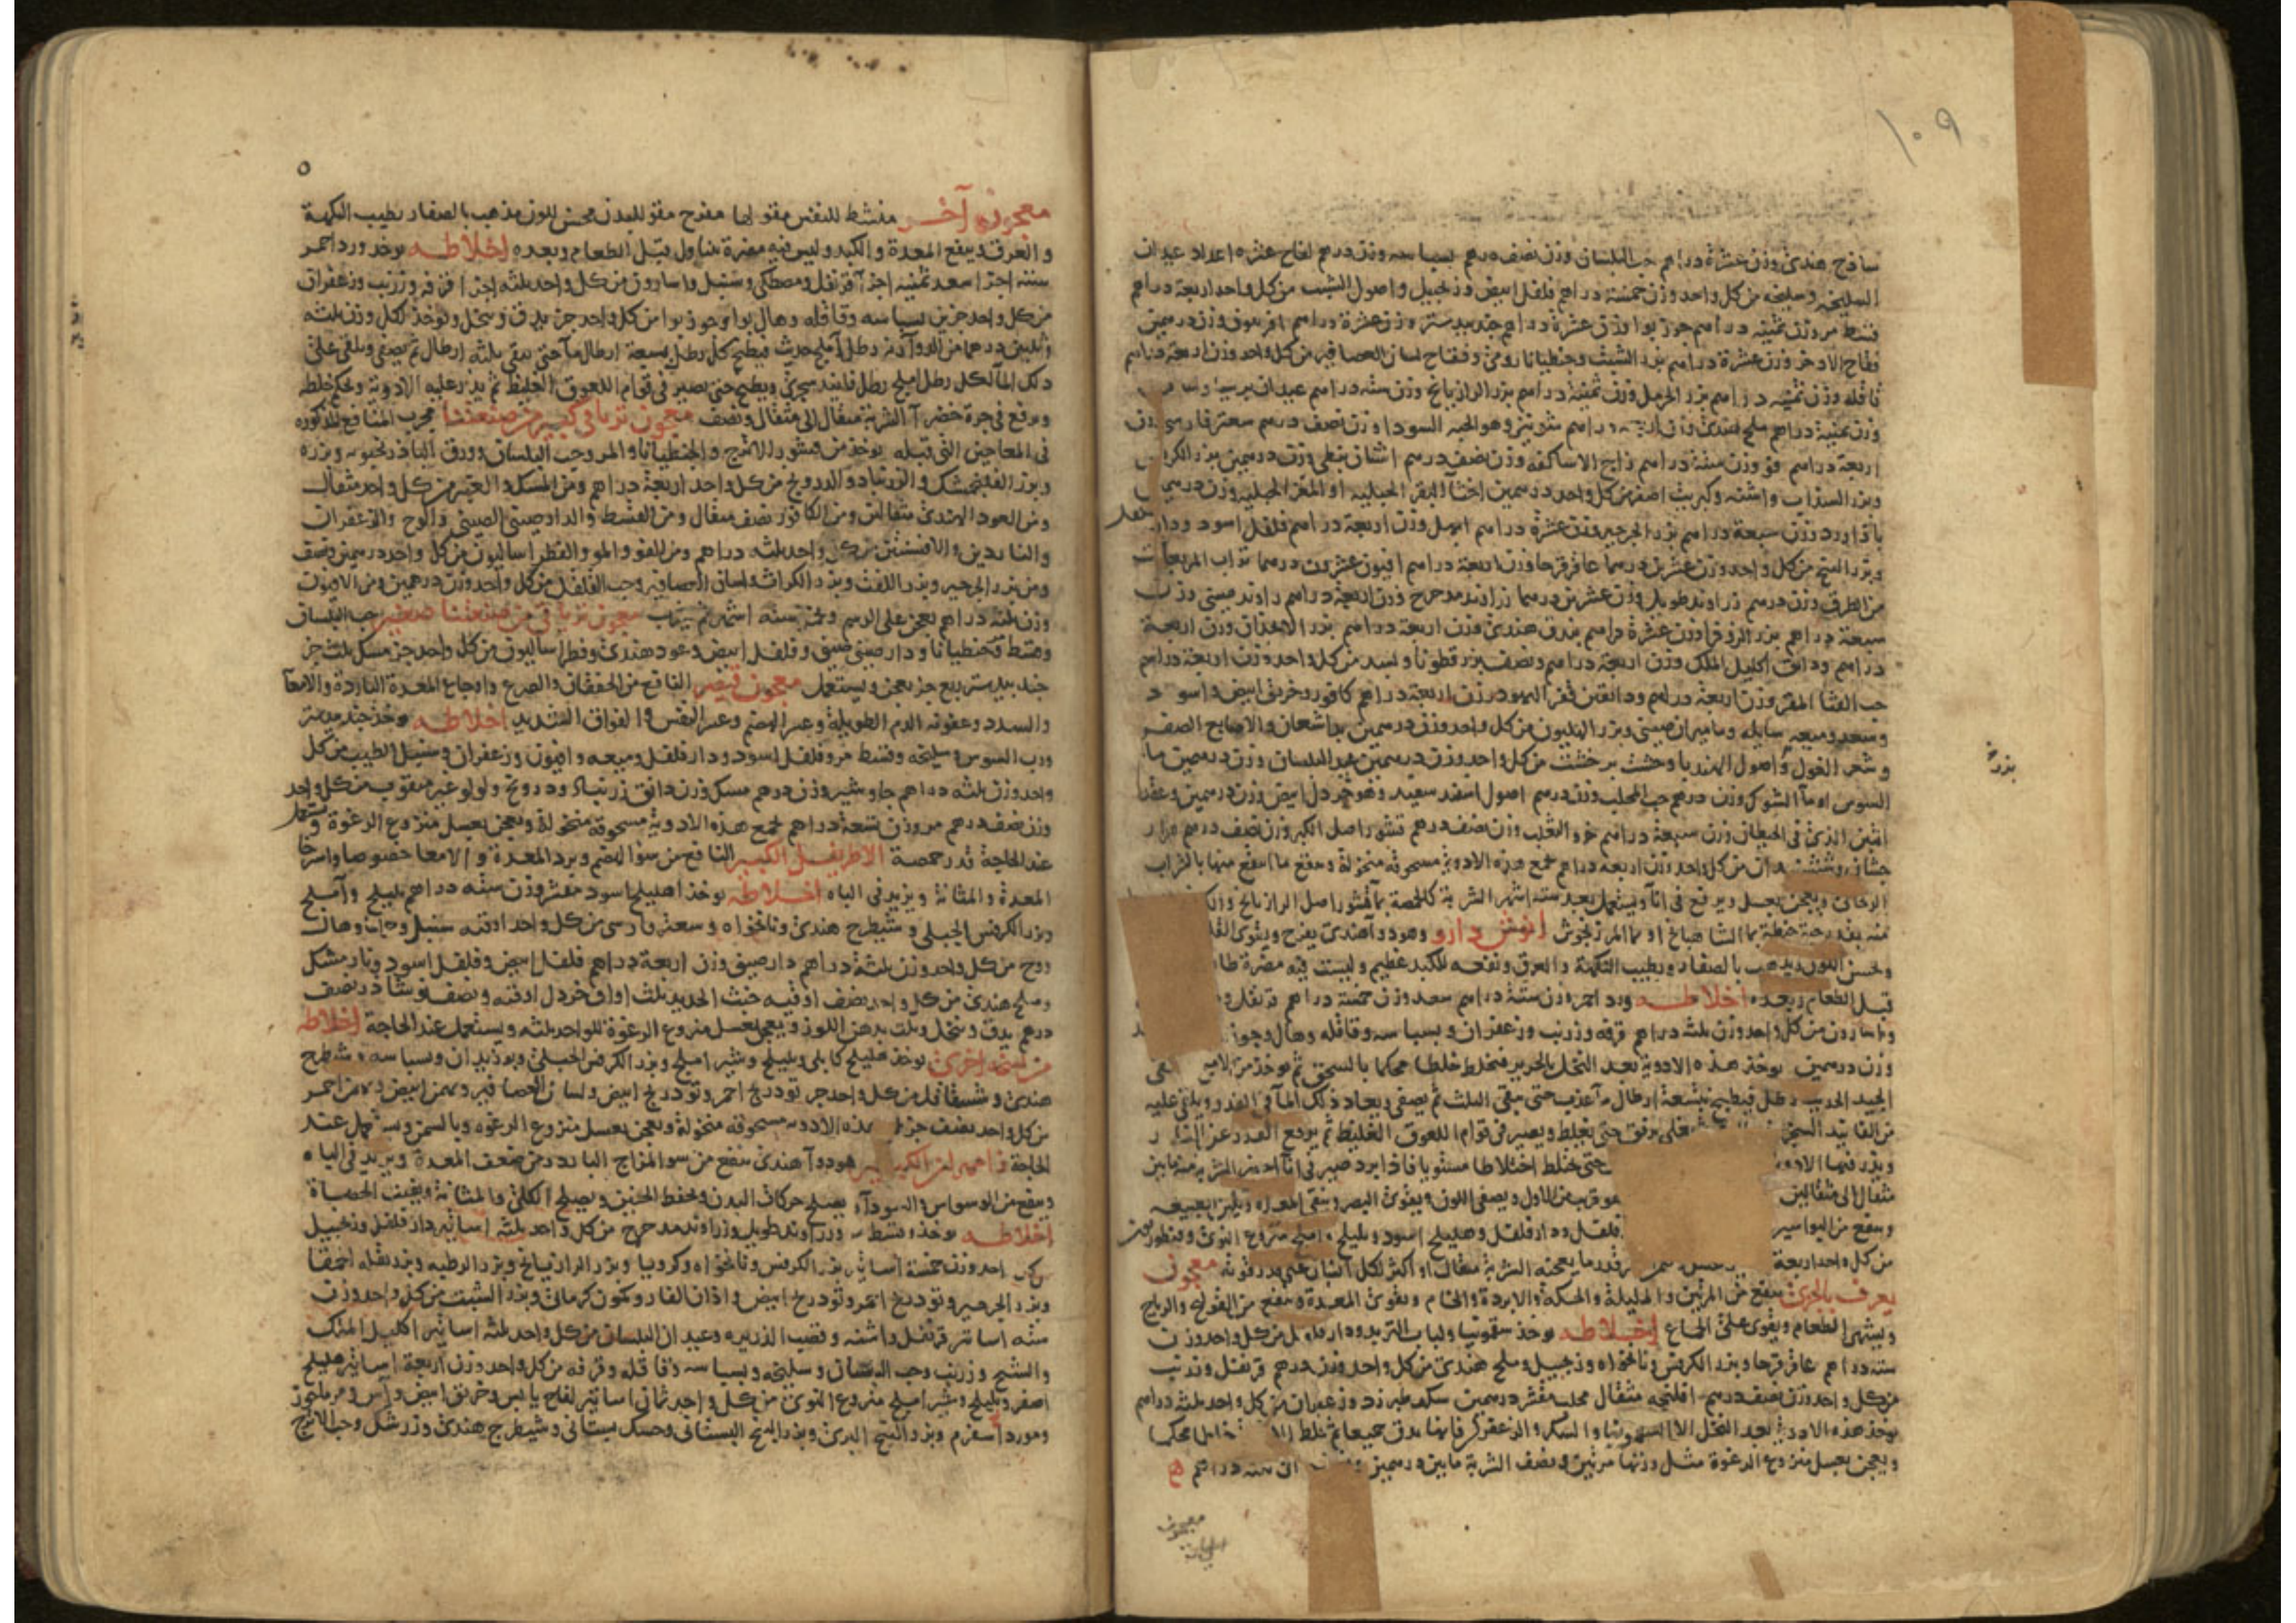 ١٠٩
ساذج هندى وزن عشرة دراهم حب البلسان وزن نصف درهم بسباسه وزن درهم لفاح عشره اعداد عيدان
السليخه وسليخه من كل واحد وزن خمسة دراهم فلفل ابيض وزنجبيل واصول الشبت من كل واحد اربعة دراهم
قسط مر وزن ثمنيه دراهم جوز بوا وزن عشرة دراهم جندبيدستر وزن عشرة دراهم افربيون وزن درهمين
فقاح الاذخر وزن عشرة دراهم بزر الشبت وجنطيانا رومى وفقاح لسان العصافير من كل واحد وزن اربعة دراهم
قاقله وزن ثمنيه دراهم بزر الحرمل وزن ثمنية دراهم بزر الرازيانج وزن سته دراهم عيدان
وزن ثمنية دراهم ملح هندى وزن دراهم شونيز وهو الحبه السودا وزن نصف درهم سعتر فارسى وزن
اربعة دراهم فو وزن ستة دراهم زاج الاساكفه وزن نصف درهم اشنان نبطى وزن درهمين بزر الكرفس
وبزر السذاب واشنه وكبريت اصفر من كل واحد درهمين اخثا البقر الجبليه او المعز الجبليه وزن درهمين
باذاورد وزن سبعة دراهم بزر الجرجير وزن عشرة دراهم ابهل وزن اربعة دراهم فلفل اسود ودار
وبزر البنج من كل واحد وزن عشرين درهما عاقرقرحا وزن اربعة دراهم افيون عشرون درهما تراب المربعات
من الطرق وزن درهم زراوند طويل وزن عشرين درهما زراوند مدحرج وزن اربعة دراهم راوند صينى وزن
سبعة دراهم بزر وزن عشرة دراهم بندق هندى وزن اربعة دراهم بزر الانجذان وزن اربعة
دراهم ودانق اكليل الملك وزن اربعة دراهم ونصف بزر قطونا وبسد من كل واحد وزن اربعة دراهم
حب القثا المقشر وزن اربعة دراهم ودانقين قفر اليهود وزن اربعة دراهم كافور وخربق ابيض واسود
وسعد وميعه سايله وماميران صينى وبزر الهليون من كل واحد وزن درهمين والاصابع الصفر
وشعر الغول واصول الهندبا من كل واحد وزن درهمين البلسان وزن درهمين ما
السوس او ما الشوك وزن درهم حب المحلب وزن درهم اصول اسفند سفيد وهو خردل ابيض وزن درهمين وعقرب
بزره
الذى فى الحيطان وزن سبعة دراهم خرو الثعلب وزن نصف درهم قشور اصل الكبر وزن نصف درهم مرار
من كل واحد وزن اربعه دراهم تجمع هذه الادوية مسحوقه منخولة وينقع ما انتقع منها بالشراب
الريحانى ويعجن بعسل ويرفع فى انا ويستعمل بعد ستة اشهر الشربة كالحمصة بما قشور اصل الرازيانج
منه بقدر حبة حنطة بما الشاهبانج او بما المرزنجوش انوش دارو وهو دوا هندى يفرح ويقوى القلب
ويحسن اللون ويذهب بالصفار ويطيب النكهة والعرق ونفعه للكبد عظيم وليست فيه مضرة
قبل الطعام وبعده اخلاطه ورد احمر وزن ستة دراهم سعد وزن خمسة دراهم قرنفل
واسارون من كل واحد وزن ثلثه دراهم قرفه وزرنب وزعفران وبسباسه وقاقله وهال وجوز
وزن درهمين يوخذ هذه الادوية بعد النخل بالحرير فتخلط خلطا محكما بالسحق ثم يوخذ من الاملج
الجيد الحديث رطل فيطبخ بتسعة ارطال ما عذب حتى يبقى الثلث ثم يصفى ويعاد ذلك الما فى القدر ويلقى عليه
من الفانيد السجزى يغلى برفق حتى يغلظ ويصير فى قوام اللعوق الغليظ ثم يرفع القدر عن النار
ويذر فيها الادويه حتى تختلط اختلاطا مستويا فاذا برد صير فى انا الشربة منه ما بين
مثقال الى مثقالين هو قريب من الاول ويصفى اللون ويقوى البصر وينقى المعده ويلين الطبيعه
وينفع من البواسير فلفل ودارفلفل وهليلج اسود وبليلج واملج منزوع النوى
من كل واحد اربعة قدر ما يعجنه الشربة مثقال او اكثر لكل انسان على قدر قوته معجون
يعرف بالجزى ينفع من المرتين والمليلة والحكة والابردة والخام ويقوى المعدة وينفع من القولنج والرياح
ويشهى الطعام ويقوى على الجماع اخلاطه يوخذ سقمونيا ولباب التربد ودارفلفل من كل واحد وزن
سته دراهم عاقرقرحا وبزر الكرفس ونانخواه وزنجبيل وملح هندى من كل واحد وزن درهم قرنفل وزرنب
من كل واحد وزن نصف درهم افلنجه مثقال محلب مقشر درهمين سكر طبرزد وزعفران من كل واحد ثلثة دراهم
يوخذ هذه الادوية بعد النخل الا السقمونيا والسكر والزعفران فانها تدق جميعا ثم تخلط محكما
ويعجن بعسل منزوع الرغوة مثل وزنها مرتين ونصف الشربة ما بين درهمين الى سته دراهم
معجون
٥
معجون آخر منشط للنفس مقو لها مفرح مقو للبدن محسن للون مذهب بالصفار يطيب النكهة
والعرق وينفع المعدة والكبد وليس فيه مضرة يتناول قبل الطعام وبعده اخلاطه يوخذ ورد احمر
سته اجزا سعد ثمنيه اجزا قرنفل ومصطكى وسنبل واسارون من كل واحد ثلثه اجزا قرفه وزرنب وزعفران
من كل واحد جزين بسباسه وقاقله وهال بوا وجوز بوا من كل واحد جز يدق وينخل ويوخذ لكل وزن ثلثه
وثلثين درهما من الدوا رطل املج حديث فيطبخ كل رطل بتسعة ارطال ما حتى يبقى ثلثه ارطال ثم يصفى ويلقى على
ذلك الما لكل رطل املج رطل فانيد سجزى ويطبخ حتى يصير فى قوام اللعوق الغليظ ثم يذر عليه الادوية ويحكم خلطه
ويرفع فى جرة خضرا الشربة مثقال الى مثقال ونصف معجون ترياقى كبير من صنعتنا مجرب المنافع المذكوره
فى المعاجين التى قبله يوخذ من قشور الاترج والجنطيانا والمر وحب البلسان وورق الباذرنجبويه وبزره
وبزر الفرنجمشك والزرنباد والدرونج من كل واحد اربعة دراهم ومن المسك والعنبر من كل واحد مثقال
ومن العود الهندى مثقالين ومن الكافور نصف مثقال ومن القسط والدارصينى الصينى والوج والزعفران
والناردين والافسنتين من كل واحد ثلثه دراهم ومن الفو والمو والفطراساليون من كل واحد درهمين ونصف
ومن بزر الجرجير وبزر اللفت وبزر الكراث ولسان العصافير وحب الفلفل من كل واحد وزن درهمين ومن الافيون
وزن ثلثة دراهم يعجن على الرسم ويخمر ستة اشهر ثم يشرب معجون ترياقى من صنعتنا صغير حب البلسان
وقسط وجنطيانا ودارصينى صينى وفلفل ابيض وعود هندى وفطراساليون من كل واحد جز مسك ثلث جز
جندبيدستر ربع جز يعجن ويستعمل معجون قيصر النافع من الخفقان والصرع واوجاع المعدة الباردة والامعا
والسدد وعفونة الدم الطويلة وعسر الهضم وعسر النفس والفواق الشديد اخلاطه يوخذ جندبيدستر
ورب السوس وسليخه وقسط مر وفلفل اسود ودارفلفل وميعه وافيون وزعفران وسنبل الطيب من كل
واحد وزن ثلثه دراهم جاوشير وزن درهم مسك وزن دانق زرنباد ودرونج ولولو غير مثقوب من كل واحد
وزن نصف درهم مر وزن تسعة دراهم تجمع هذه الادوية مسحوقة منخولة وتعجن بعسل منزوع الرغوة ويستعمل
عند الحاجة قدر حمصة الاطريفل الكبير النافع من سو الهضم وبرد المعدة والامعا خصوصا واسترخا
المعدة والمثانة ويزيد فى الباه اخلاطه يوخذ اهليلج اسود مقشر وزن سته دراهم بليلج وآملج
وبزر الكرفس الجبلى وشيطرج هندى ونانخواه وسعتر فارسى من كل واحد اوقيه سنبل وحماما وهال
ووج من كل واحد وزن ثلثة دراهم دارصينى وزن اربعة دراهم فلفل ابيض وفلفل اسود ونارمشك
وملح هندى من كل واحد نصف اوقيه خبث الحديد ثلث اواق خردل اوقيه ونصف ونشادر نصف
درهم يدق وينخل ويلت بدهن اللوز ويعجن بعسل منزوع الرغوة للواحد ثلثه ويستعمل عند الحاجة اخلاطه
من نسخة اخرى يوخذ هليلج كابلى وبليلج وشير املج وبزر الكرفس الجبلى وبوزيدان وبسباسه وشيطرج
هندى وشقاقل من كل واحد جز تودرج احمر وتودرج ابيض ولسان العصافير وبهمن ابيض وبهمن احمر
من كل واحد نصف جز تجمع هذه الادويه مسحوقه منخولة وتعجن بعسل منزوع الرغوه وبالسمن ويستعمل عند
الحاجة زامهران الكبير هو دوا هندى ينفع من سو المزاج البارد ومن ضعف المعدة ويزيد فى الباه
وينفع من الوسواس والسودآء يصلح حركات البدن ويحفظ الجنين ويصلح الكلى والمثانة ويفتت الحصاة
اخلاطه يوخذ قسط مر وزراوند طويل وزراوند مدحرج من كل واحد ثلثه اساتير دارفلفل وزنجبيل
من كل واحد وزن خمسة اساتير بزر الكرفس ونانخواه وكرويا وبزر الرازيانج وبزر الرطبه وبزر بقله الحمقا
وبزر الجرجير وتودرج احمر وتودرج ابيض واذان الفار وكمون كرمانى وبزر الشبت من كل واحد وزن
سته اساتير قرنفل واشنه وقصب الذريره وعيدان البلسان من كل واحد ثلثه اساتير اكليل الملك
والشيح وزرنب وحب البلسان وسليخه وبسباسه وقاقله وقرفه من كل واحد وزن اربعة اساتير هليلج
اصفر وبليلج وشير املج منزوع النوى من كل واحد ثمانى اساتير لفاح يابس وخربق ابيض وآس ومرماحوز
ومورداسفرم وبزر البنج البرى وبزر البنج البستانى وحسك بستانى وشيطرج هندى وزرشك وحب الاترج